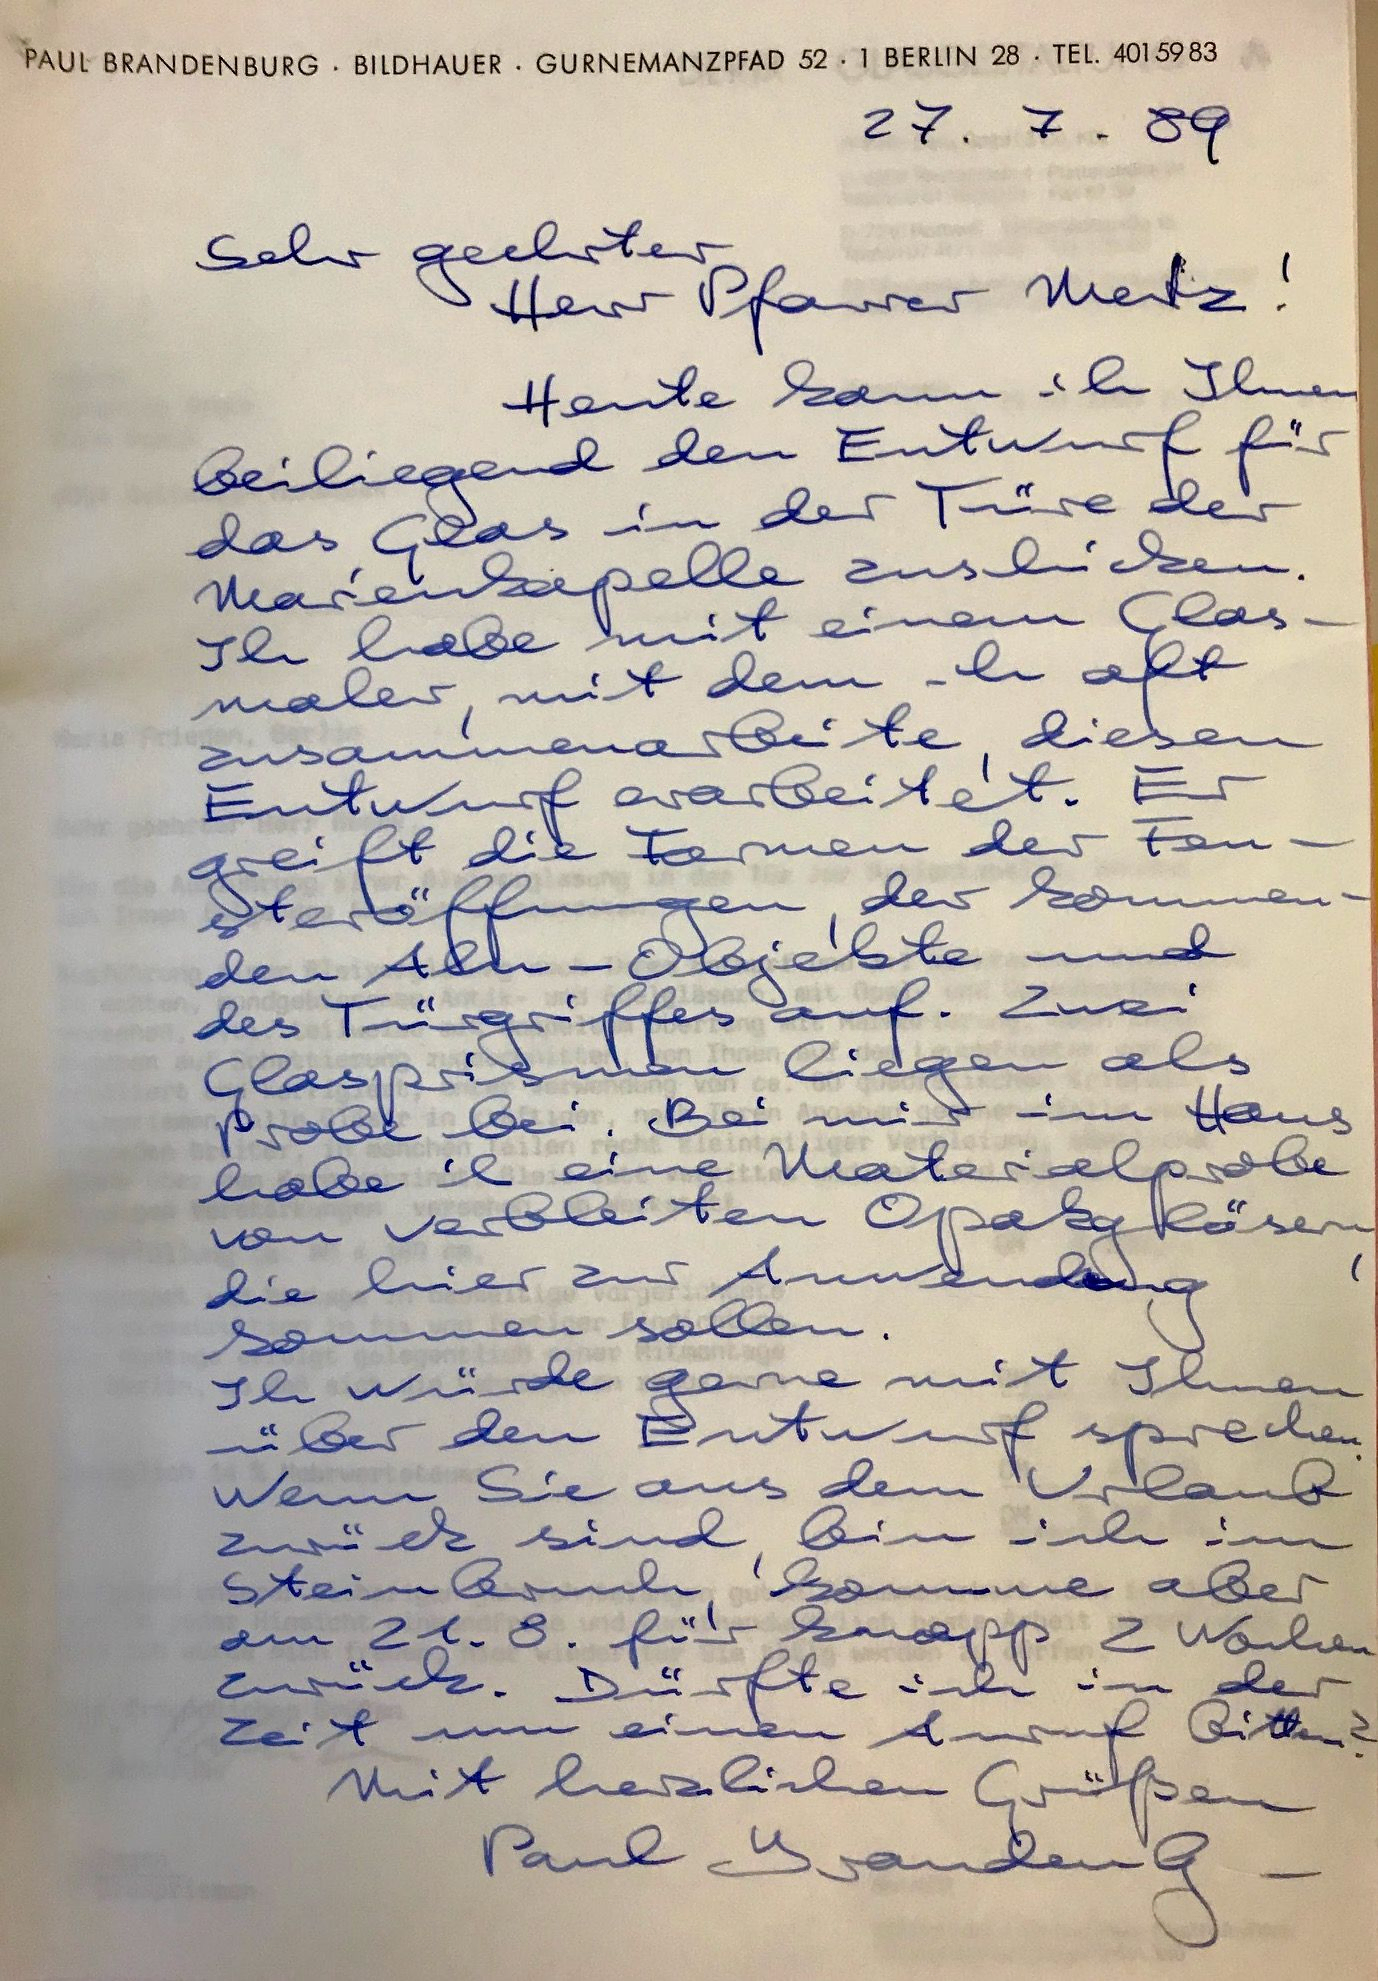 PAUL BRANDENBURG · BILDHAUER · GURNEMANZPFAD 52 · 1 BERLIN 28 · TEL. 401 59 83
27. 7. 89
Sehr geehrter
Herr Pfarrer Metz!
Heute kann ich Ihnen
beiliegend den Entwurf für
das Glas in der Türe der
Marienkapelle zuschicken.
Ich habe mit einem Glas-
maler, mit dem ich oft
zusammenarbeite, diesen
Entwurf erarbeitet. Er
greift die Formen der Fen-
steröffnungen, der kommen-
den Alu-Objekte und
des Türgriffes auf. Zwei
Glasprismen liegen als
Probe bei. Bei mir im Haus
habe ich eine Materialprobe
von verbleiten Opakgläsern,
die hier zur Anwendung
kommen sollen.
Ich würde gerne mit Ihnen
über den Entwurf sprechen.
Wenn Sie aus dem Urlaub
zurück sind, bin ich im
Steinbruch, komme aber
am 21. 8. für knapp 2 Wochen
zurück. Dürfte ich in der
Zeit um einen Anruf bitten?
Mit herzlichen Grüßen
Paul Brandenbg